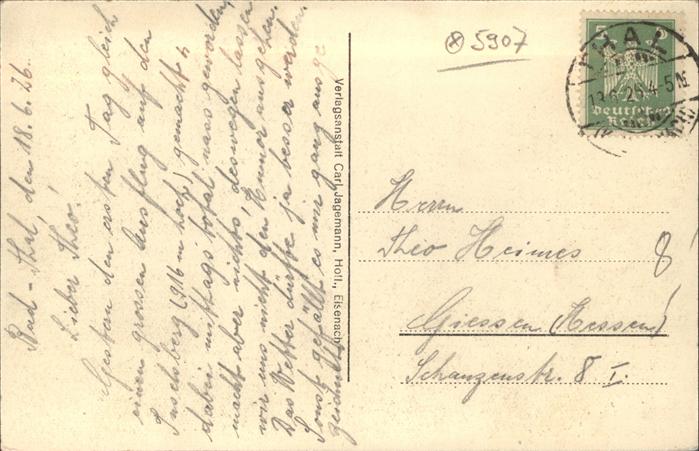 Bad-Thal, den 18.6.26.
Lieber Theo!
Gestern den ersten Tag gleich
einen grossen Ausflug auf den
Inselsberg (916 m hoch) gemacht u.
dabei mittags total nass geworden,
macht aber nichts, deswegen lassen
wir uns nicht den Humor ausgehen.
Das Wetter dürfte ja besser werden.
Sonst gefällt es mir ganz ausge
Verlagsanstalt Carl Jagemann, Hofl., Eisenach
5907
5 5
Deutsches
Reich
THAL
Herrn
Theo Heimes
Giessen (Hessen)
Schanzenstr. 8 I.